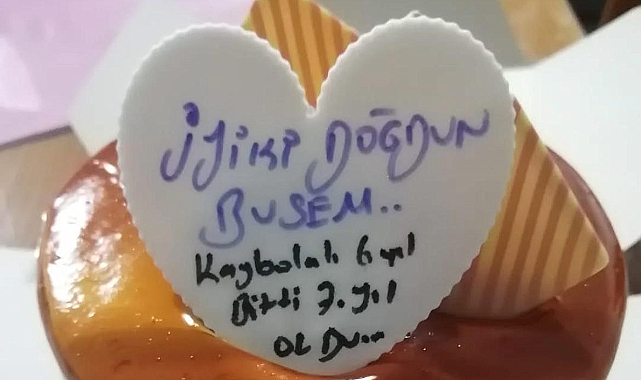 İyiki DOĞDUN
BUSEM..
Kaybolalı 6 yıl
Bitti 7. yıl
OLDU...